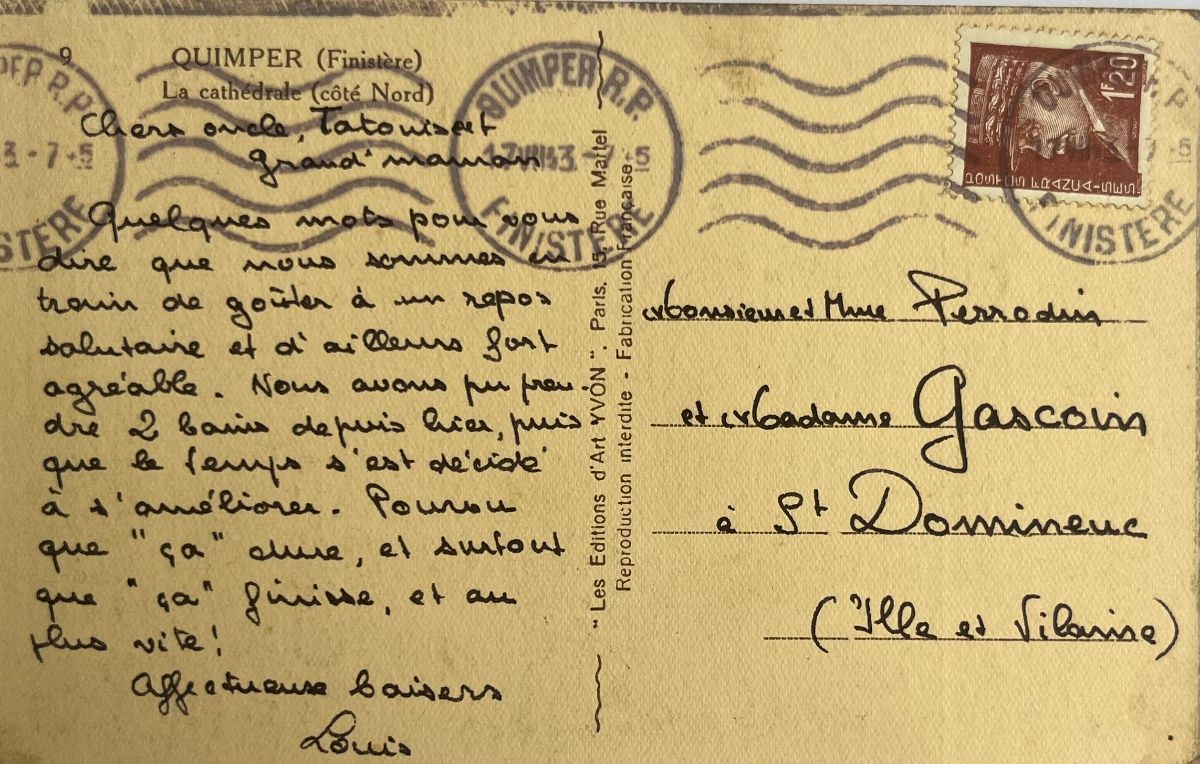 9
QUIMPER (Finistère)
La cathédrale (côté Nord)
Chers oncle, Tatouis et
Grand'maman
Quelques mots pour vous
dire que nous sommes en
train de goûter à un repos
salutaire et d'ailleurs fort
agréable. Nous avons pu pren-
dre 2 bains depuis hier, puis
que le temps s'est décidé
à s'améliorer. Pourvu
que "ça" dure, et surtout
que "ça" finisse, et au
plus vite!
Affectueuse baisers
Louis
"Les Editions d'Art YVON". Paris, 15, Rue Martel
Reproduction interdite - Fabrication Française
QUIMPER R.P.
FINISTÈRE
1F20
POSTES FRANÇAISES
Monsieur et Mme Perrodin
et Madame Gascoin
à St Domineuc
(Ille et Vilaine)